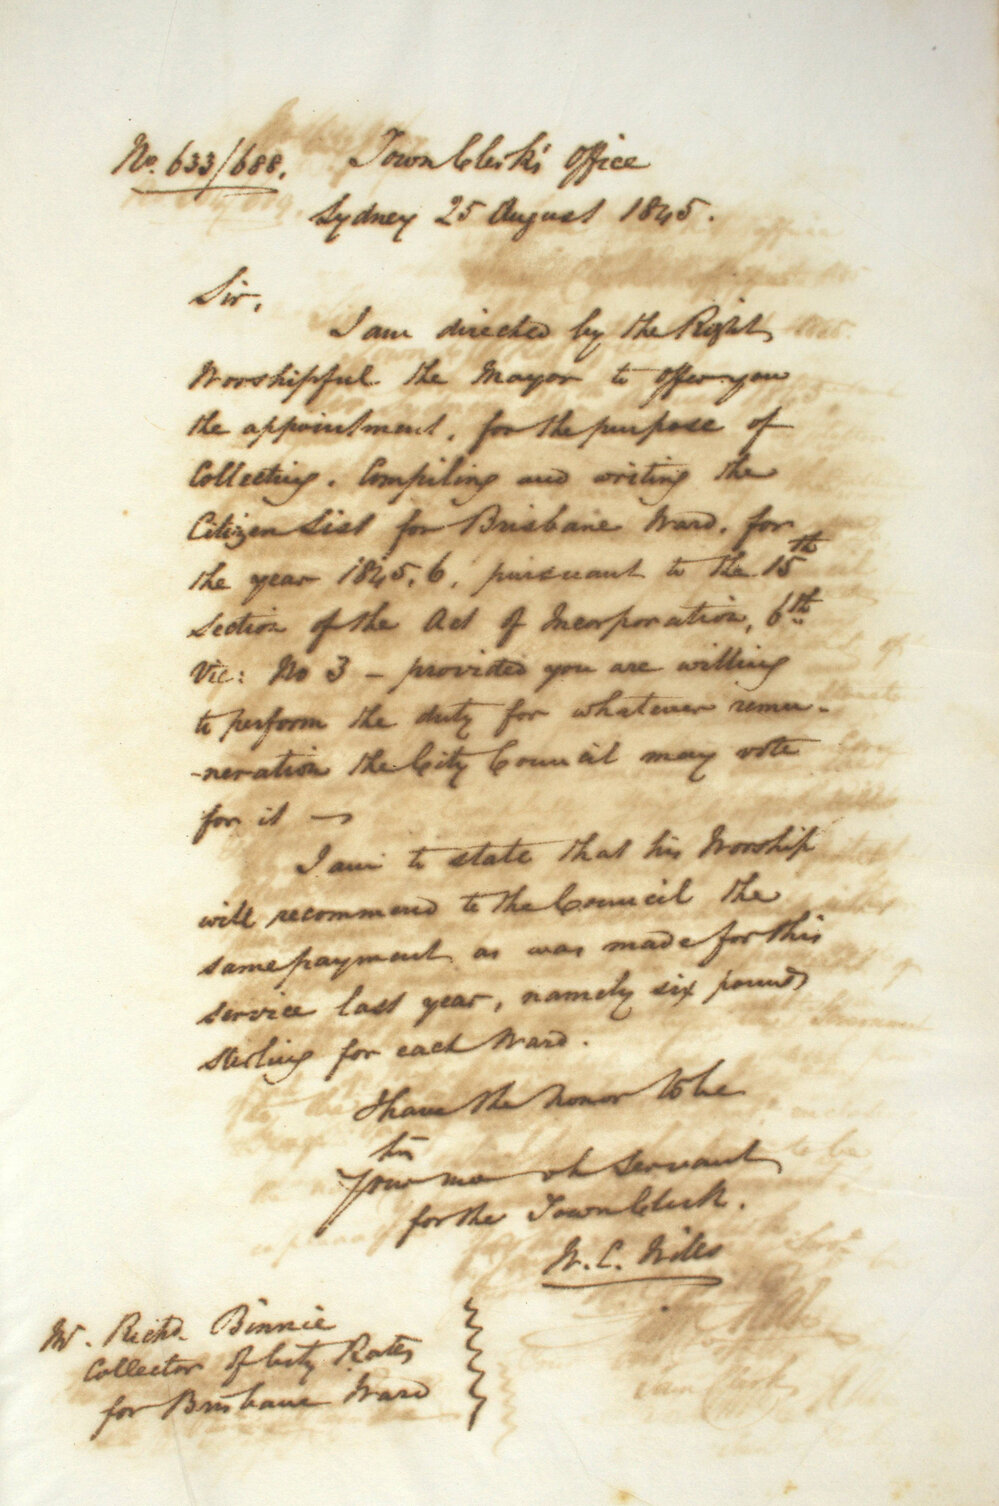 No. 633/688. Town Clerk's Office
Sydney 25 August 1845.
Sir,
I am directed by the Right
Worshipful the Mayor to offer you
the appointment, for the purpose of
Collecting, Compiling and writing the
Citizen List for Brisbane Ward, for
the year 1845,6, pursuant to the 15th
Section of the Act of Incorporation, 6th
Vic: No 3 – provided you are willing
to perform the duty for whatever remu-
-neration the City Council may vote
for it –
I am to state that his Worship
will recommend to the Council the
same payment as was made for this
service last year, namely six pounds
sterling for each Ward.
I have the honor to be
Sir
Your mo ob Servant
for the Town Clerk.
W. C. Wills
Mr. Richd. Binnie
Collector of City Rates
for Brisbane Ward